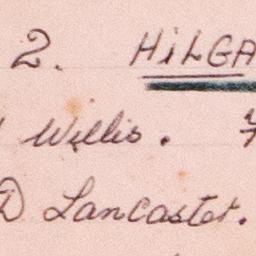 2. HiLGA
Willis.
D Lancaster.